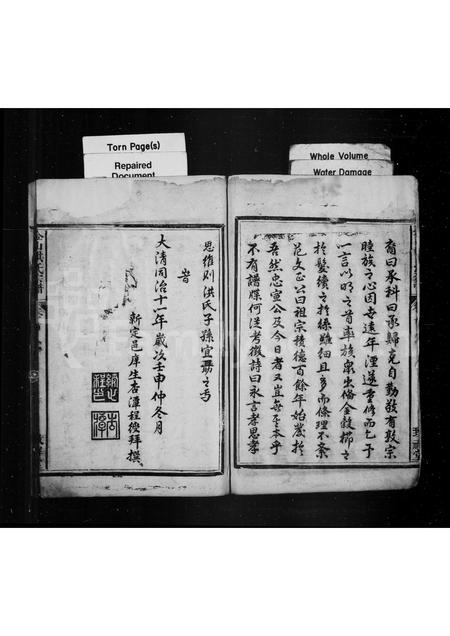 Torn Page(s)
Repaired
Document
Whole Volume
Water Damage
裔曰承科曰承歸克自勤敏有敦宗
睦族之心因世遠年湮遂重修而乞予
一言以明之首率族衆出脩金毅櫛之
於髮續之於絲雖細且多而條理不紊
范文正公曰祖宗積德百餘年始發於
吾然忠宣公及今日者又豈無本乎
不有譜牒何從考徵詩曰永言孝思孝
思維則洪氏子孫宜勗之丐
旹
大清同治十一年歲次壬申仲冬月
新定邑庠生杏潭程俊拜撰